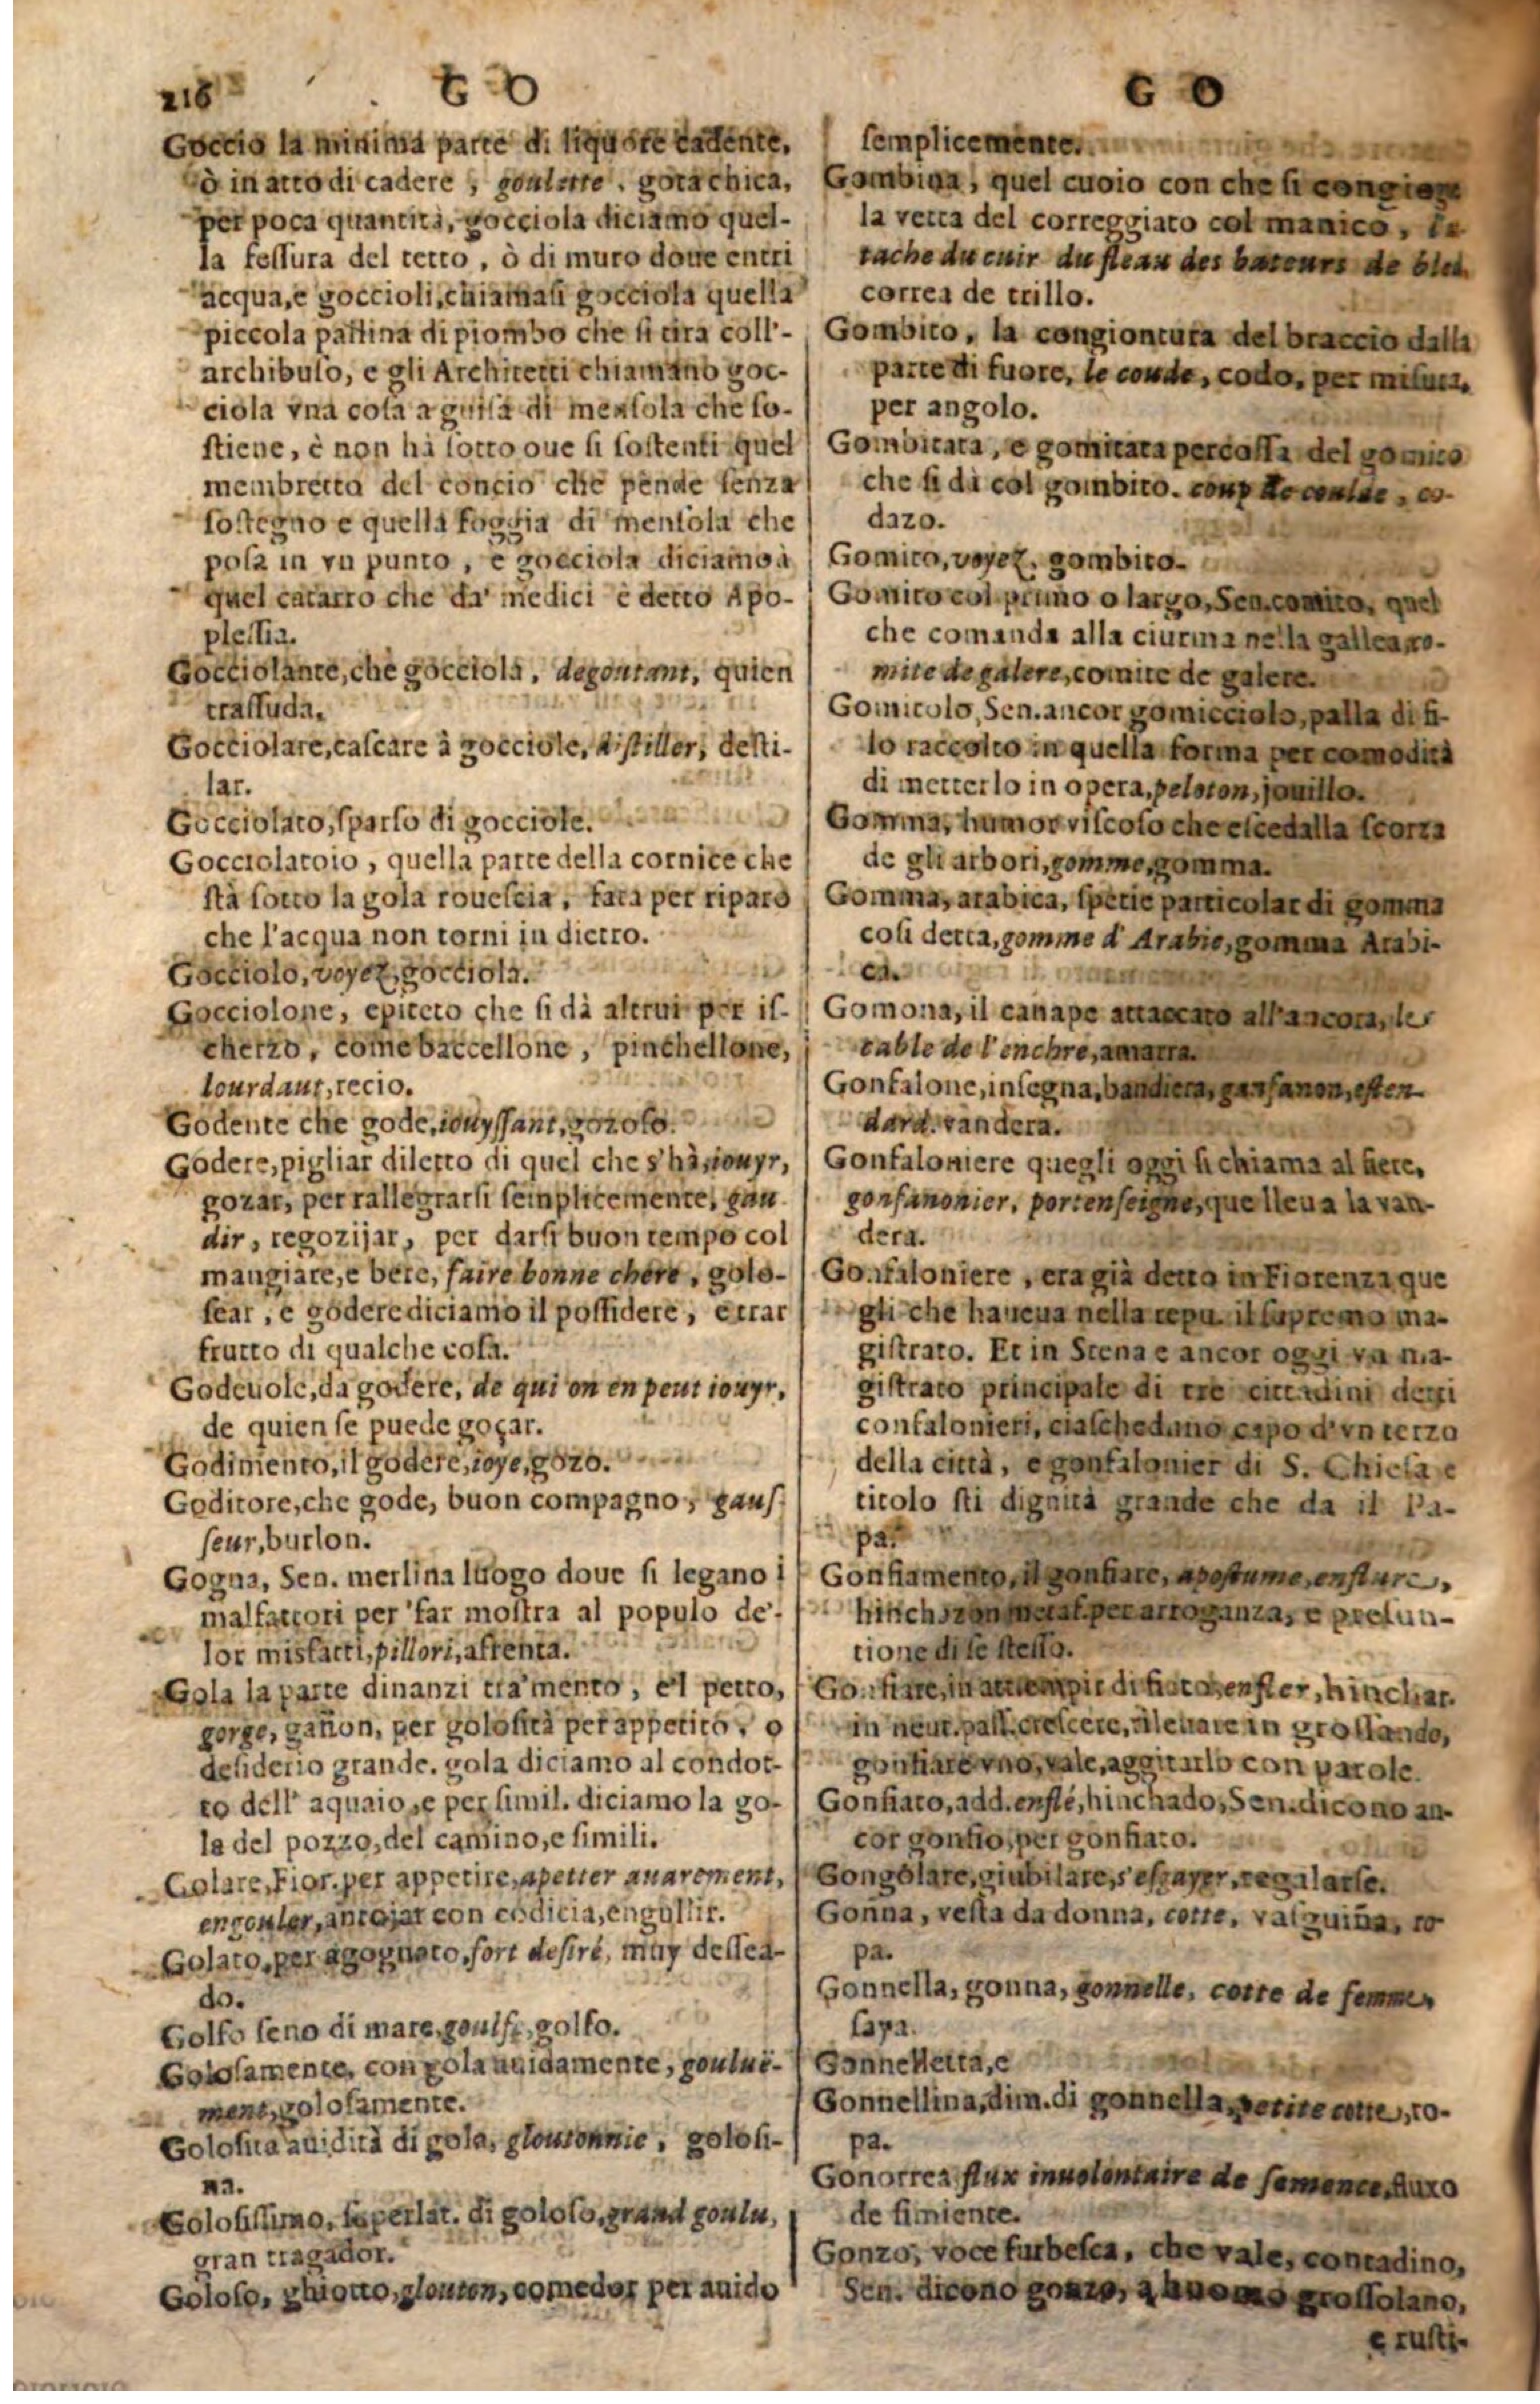 216 G O
Goccio la minima parte di liquore cadente,
ò in atto di cadere, goulette, gota chica,
per poca quantità, gocciola diciamo quel-
la fessura del tetto, ò di muro doue entri
acqua, e goccioli, chiamasi gocciola quella
piccola pallina di piombo che si tira coll'-
archibuso, e gli Architetti chiamano goc-
ciola vna cosa a guisa di mensola che so-
stiene, è non hà sotto oue si sostenti quel
membretto del concio che pende senza
sostegno e quella foggia di mensola che
posa in vn punto, e gocciola diciamo à
quel catarro che da' medici è detto Apo-
plessia.
Gocciolante, che gocciola, degoutant, quien
trassuda.
Gocciolare, cascare à gocciole, distiller, desti-
lar.
Gocciolato, sparso di gocciole.
Gocciolatoio, quella parte della cornice che
stà sotto la gola rouescia, fata per riparo
che l'acqua non torni in dietro.
Gocciolo, voyez, gocciola.
Gocciolone, epiteto che si dà altrui per is-
cherzo, come baccellone, pinchellone,
lourdaut, recio.
Godente che gode, iouyssant, gozoso.
Godere, pigliar diletto di quel che s'hà, iouyr,
gozar, per rallegrarsi semplicemente, gau
dir, regozijar, per darsi buon tempo col
mangiare, e bere, faire bonne chere, golo-
sear, e godere diciamo il possidere, e trar
frutto di qualche cosa.
Godeuole, da godere, de qui on en peut iouyr,
de quien se puede goçar.
Godimento, il godere, ioye, gozo.
Goditore, che gode, buon compagno, gaus-
seur, burlon.
Gogna, Sen. merlina luogo doue si legano i
malfattori per far mostra al populo de'-
lor misfatti, pillori, afrenta.
Gola la parte dinanzi tra'mento, e'l petto,
gorge, gañon, per golosità per appetito, o
desiderio grande. gola diciamo al condot-
to dell' aquaio, e per simil. diciamo la go-
la del pozzo, del camino, e simili.
Golare, Fior. per appetire, apetter auarement,
engouler, antojar con codicia, engullir.
Golato, per agognato, fort desiré, muy dessea-
do.
Golfo seno di mare, goulfe, golfo.
Golosamente, con gola auidamente, gouluë-
ment, golosamente.
Golosità auidità di gola, gloutonnie, golosi-
na.
Golosissimo, superlat. di goloso, grand goulu,
gran tragador.
Goloso, ghiotto, glouton, comedor per auido
G O
semplicemente.
Gombina, quel cuoio con che si congiogne
la vetta del correggiato col manico, l'a-
tache du cuir du fleau des bateurs de bled,
correa de trillo.
Gombito, la congiontura del braccio dalla
parte di fuore, le coude, codo, per misura,
per angolo.
Gombitata, e gomitata percossa del gomito
che si dà col gombito. coup de coulde, co-
dazo.
Gomito, voyez, gombito.
Gomito col primo o largo, Sen. comito, quel
che comanda alla ciurma nella gallea, co-
mite de galere, comite de galere.
Gomitolo, Sen. ancor gomicciolo, palla di fi-
lo raccolto in quella forma per comodità
di metterlo in opera, peloton, jouillo.
Gomma, humor viscoso che esce dalla scorza
de gli arbori, gomme, gomma.
Gomma, arabica, spetie particolar di gomma
cosi detta, gomme d'Arabie, gomma Arabi-
ca.
Gomona, il canape attaccato all'ancora, le
cable de l'enchre, amarra.
Gonfalone, insegna, bandiera, gonfanon, esten-
dard. vandera.
Gonfaloniere quegli oggi si chiama alfiere,
gonfanonier, portenseigne, que lleua la van-
dera.
Gonfaloniere, era già detto in Fiorenza que
gli che haueua nella repu. il supremo ma-
gistrato. Et in Siena e ancor oggi vn ma-
gistrato principale di tre cittadini detti
confalonieri, ciascheduno capo d'vn terzo
della città, e gonfalonier di S. Chiesa e
titolo sti dignità grande che da il Pa-
pa.
Gonfiamento, il gonfiare, apostume, enflure,
hinchazon metaf. per arroganza, e presun-
tione di se stesso.
Gonfiare, in att. empir di fiato, enfler, hinchar.
in neut. pass. crescere, rileuare in grossando,
gonfiare vno, vale, aggirarlo con parole.
Gonfiato, add. enflé, hinchado, Sen. dicono an-
cor gonfio, per gonfiato.
Gongolare, giubilare, s'esgayer, regalarse.
Gonna, vesta da donna, cotte, vasquiña, ro-
pa.
Gonnella, gonna, gonnelle, cotte de femme,
saya.
Gonnelletta, e
Gonnellina, dim. di gonnella, petite cotte, ro-
pa.
Gonorrea flux inuolontaire de semence, fluxo
de simiente.
Gonzo, voce furbesca, che vale, contadino,
Sen. dicono gonzo, a huomo grossolano,
e rusti-